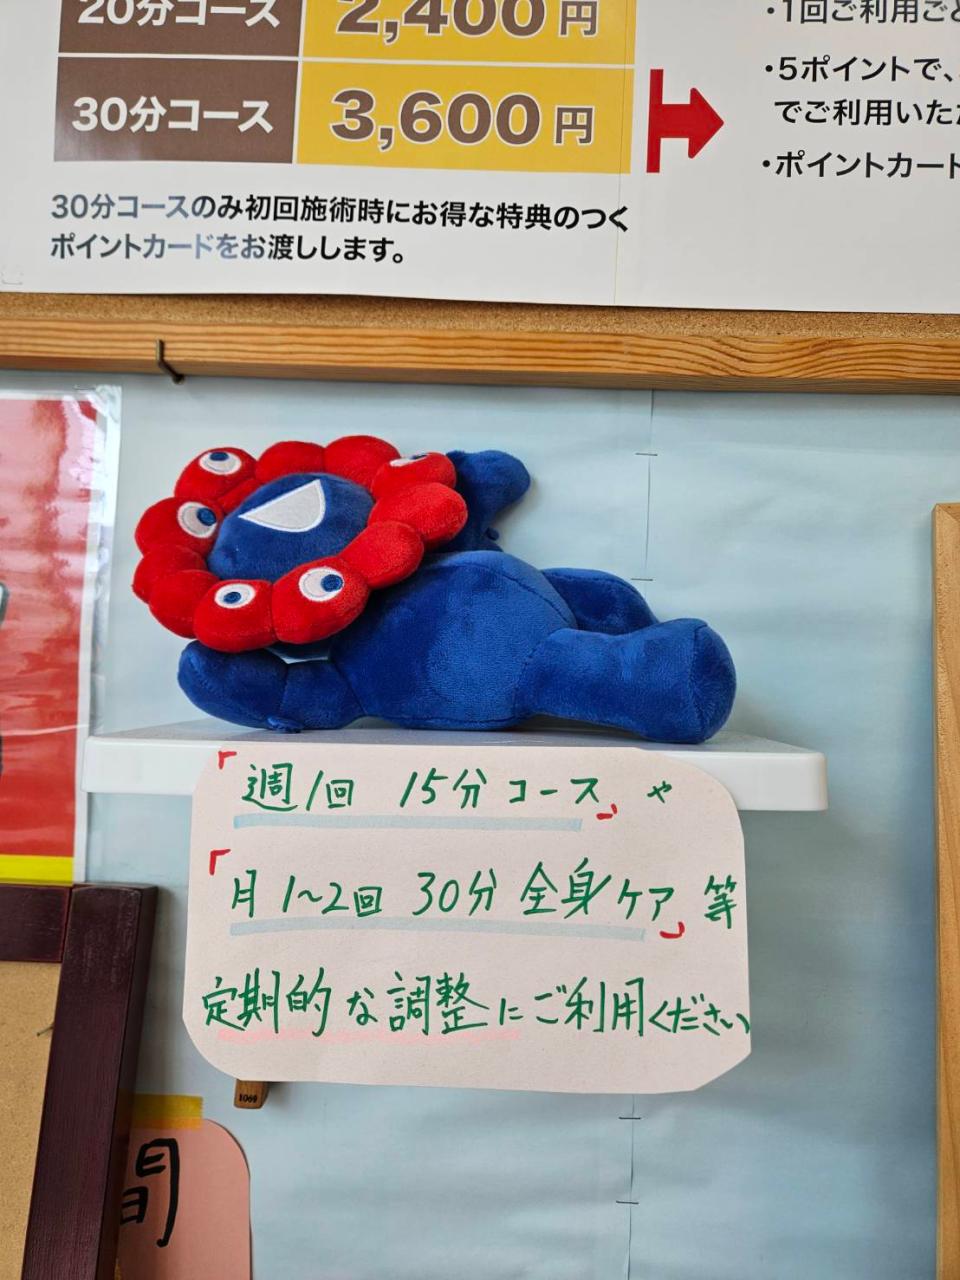 20分コース 2,400円
30分コース 3,600円
30分コースのみ初回施術時にお得な特典のつく
ポイントカードをお渡しします。
・1回ご利用ごと
・5ポイントで、
でご利用いただ
・ポイントカード
「週1回 15分コース」や
「月1~2回 30分 全身ケア」等
定期的な調整にご利用ください
1069
間